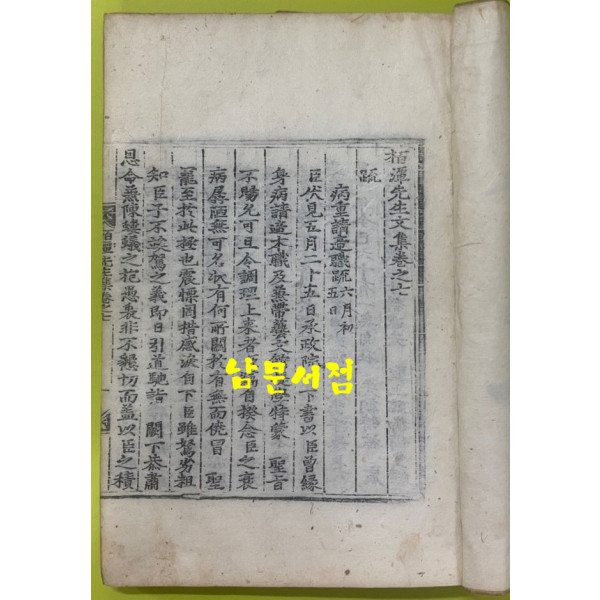 栢潭先生文集卷之七
疏
病重請遞職疏 六月初
五日
臣伏見五月二十五日承政院 下書以臣曾錄
身病請遞本職及兼帶藝文 特蒙 聖旨
不賜允可且令調理上來者 自揆念臣之衰
病孱陋無可名狀有何所關於有無而倦冒 聖
寵至於此極也震慄罔措感淚自下臣雖駑劣粗
知臣子不俟駕之義即日引道馳詣 闕下恭肅
恩命兼陳螻蟻之抱愚衷非不懇切而盖以臣之積
栢潭先生集卷七
남문서점